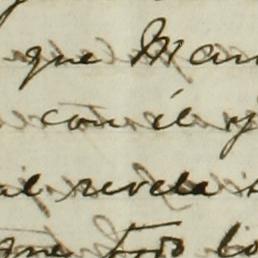 que Man
con él y
al revela
que todo lo